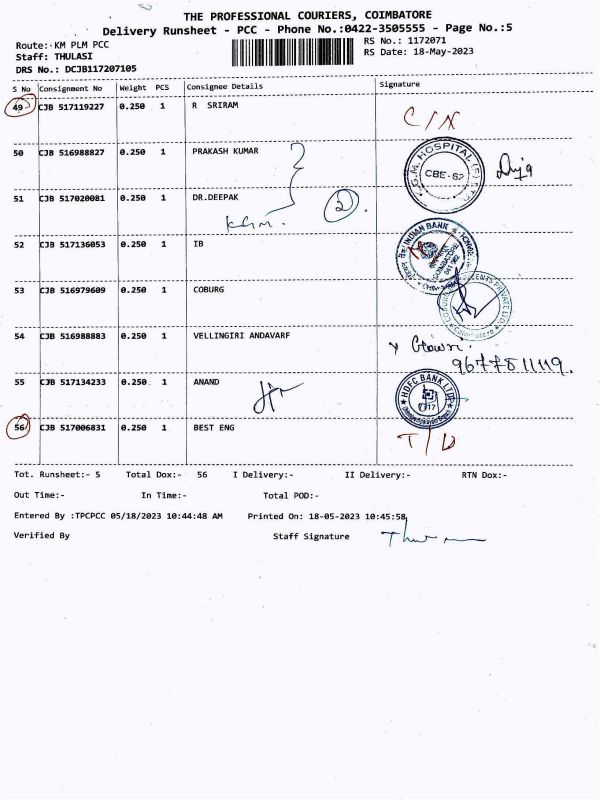 THE PROFESSIONAL COURIERS, COIMBATORE
Delivery Runsheet - PCC - Phone No.:0422-3505555 - Page No.:5
Route: KM PLM PCC
RS No.: 1172071
Staff: THULASI
RS Date: 18-May-2023
DRS No.: DCJB117207105
S No Consignment No Weight PCS Consignee Details Signature
49 CJB 517119227 0.250 1 R SRIRAM
C/N
50 CJB 516988827 0.250 1 PRAKASH KUMAR
HOSPITAL
CBE-62
51 CJB 517020081 0.250 1 DR.DEEPAK
2
52 CJB 517136053 0.250 1 IB
INDIAN BANK
53 CJB 516979609 0.250 1 COBURG
54 CJB 516988883 0.250 1 VELLINGIRI ANDAVARF
Gowsi
9677811119.
55 CJB 517134233 0.250 1 ANAND
HDFC BANK LTD
56 CJB 517006831 0.250 1 BEST ENG
T/D
Tot. Runsheet:- 5 Total Dox:- 56 I Delivery:- II Delivery:- RTN Dox:-
Out Time:- In Time:- Total POD:-
Entered By :TPCPCC 05/18/2023 10:44:48 AM Printed On: 18-05-2023 10:45:58
Verified By Staff Signature